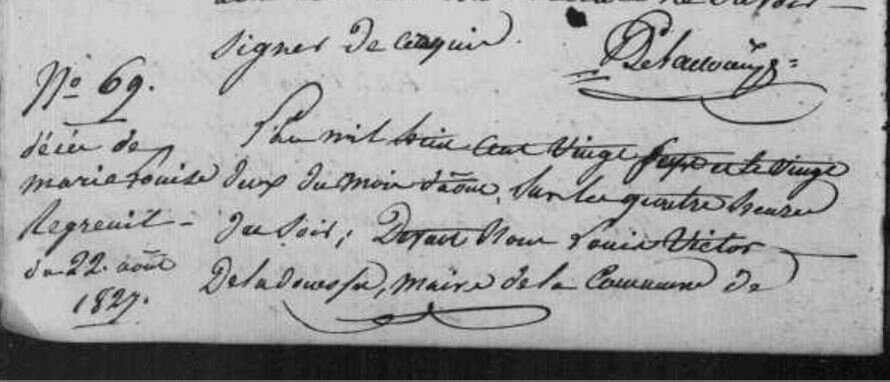 signer de ce requis.
No 69.
décès de
marie Louise
Regreuil -
du 22. août
1827.
L'an mil huit cent vingt sept et le vingt
deux du mois d'août, sur les quatre heures
du soir; Devant Nous Louis Victor
Deladouespe, maire de la Commune de